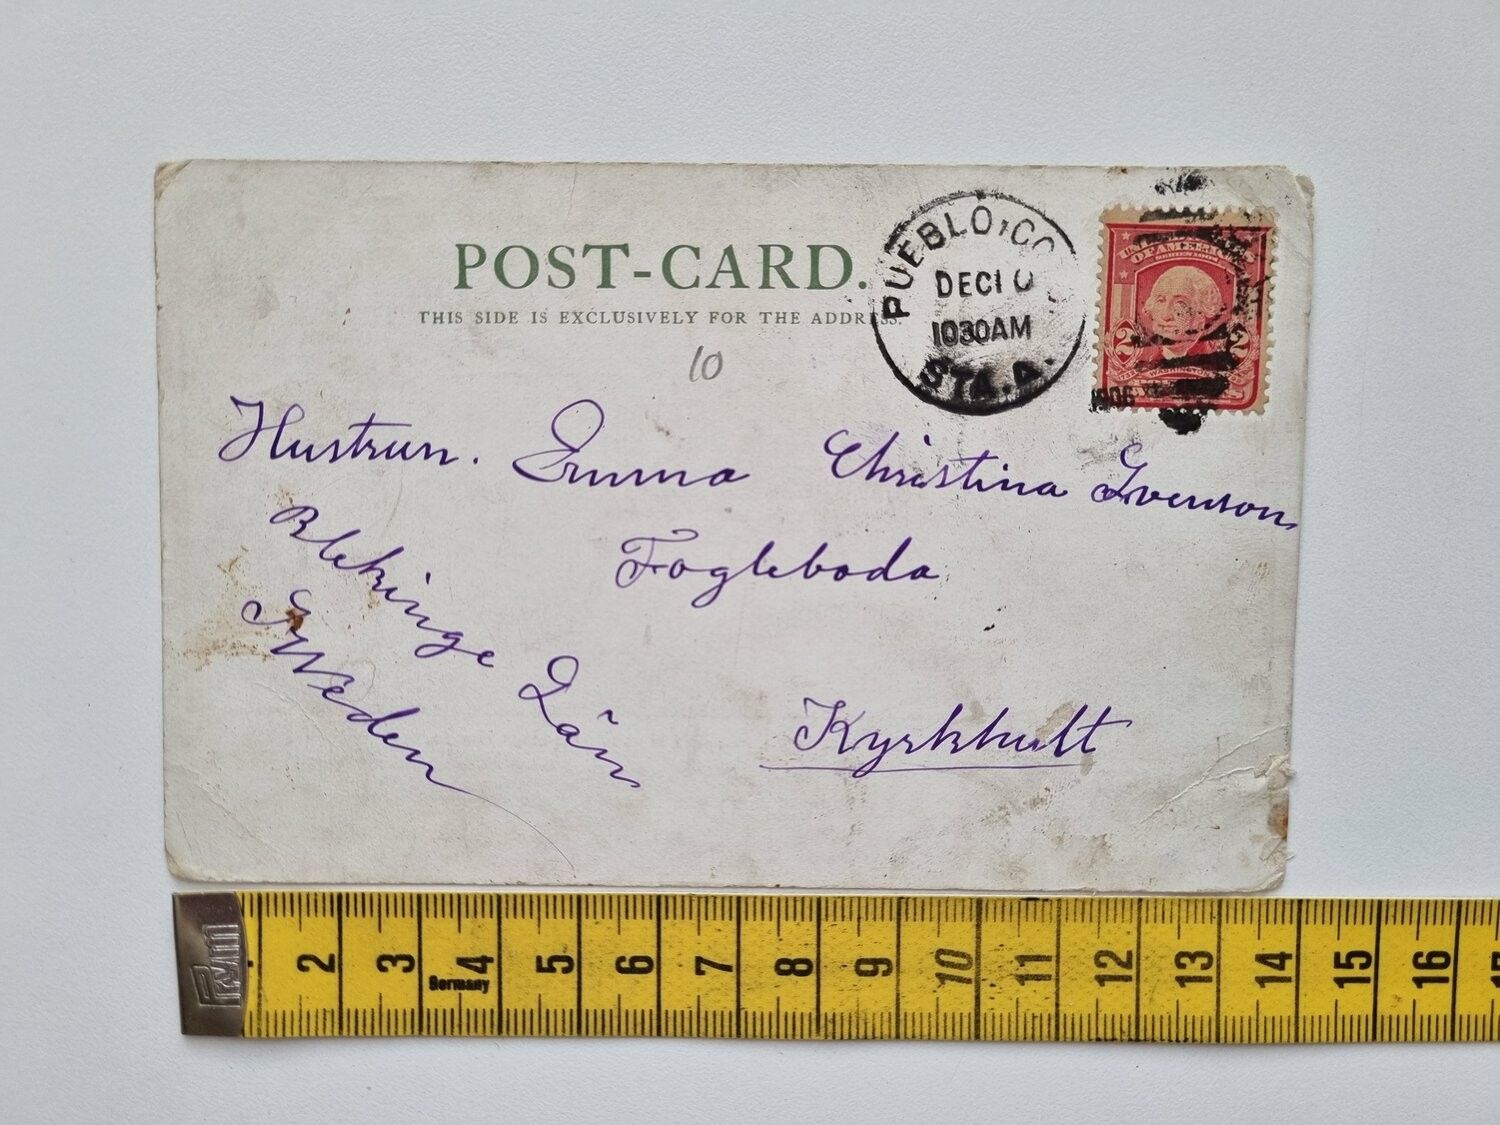 POST-CARD.
THIS SIDE IS EXCLUSIVELY FOR THE ADDRESS.
PUEBLO, CO
DEC 10
1030AM
STA. A.
1906
SERIES 1902
2 2
WASHINGTON
10
Hustrun. Emma Christina Svenson
Fogleboda
Kyrkhult
Blekinge Län
Sweden
Prym
2 3 4 5 6 7 8 9 10 11 12 13 14 15 16
Germany